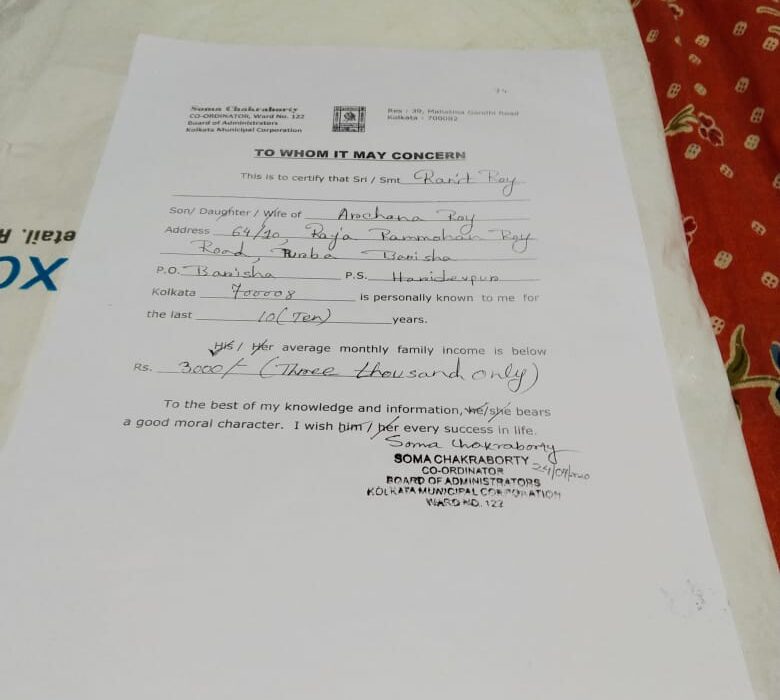 Soma Chakraborty
CO-ORDINATOR, Ward No. 122
Board of Administrators
Kolkata Municipal Corporation
Res : 39, Mahatma Gandhi Road
Kolkata - 700082
TO WHOM IT MAY CONCERN
This is to certify that Sri / Smt Ranit Roy
Son/ Daughter / Wife of Archana Roy
Address 64/10, Raja Rammohan Roy
Road, Purba Barisha
P.O. Barisha P.S. Haridevpur
Kolkata 700008 is personally known to me for
the last 10 (Ten) years.
His / Her average monthly family income is below
Rs. 3000/- (Three thousand only)
To the best of my knowledge and information, he/she bears
a good moral character. I wish him / her every success in life.
Soma Chakraborty
SOMA CHAKRABORTY
CO-ORDINATOR
BOARD OF ADMINISTRATORS
KOLKATA MUNICIPAL CORPORATION
WARD NO. 122
etail. R
XO